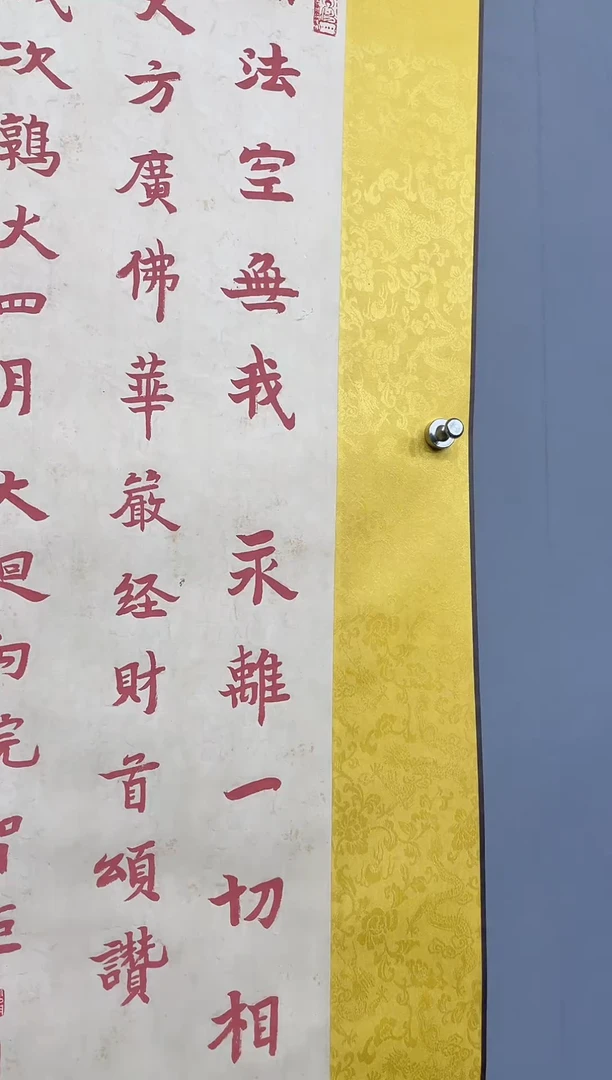 法空無我 永離一切相
大方廣佛華嚴经財首頌讚
次鶉火四月 大迴向院